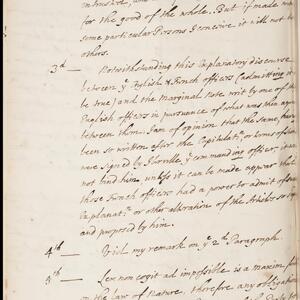 for the good of the whole. But if made
some particular Persons I conceive it will not to
others.
3d — Notwithstanding this Explanatory discourse
between ye English & French officers (admitting it
be true) and the Marginal note writ by one of the
English officers in pursuance of what was then agre
between them: I am of opinion that the same, havi
been so written after the Capitulatn. or terms of
were signed by the commanding officer, it was
not bind him unless it can be made appear that
those French officers had a power to admit of any
Explanatn. or other alteration of the Articles so
and proposed by him.
4th — Vid. my remark on ye 2d Paragraph.
5th — Lex non cogit ad impossible is a maxim
the Law of Nature, therefore any obligation